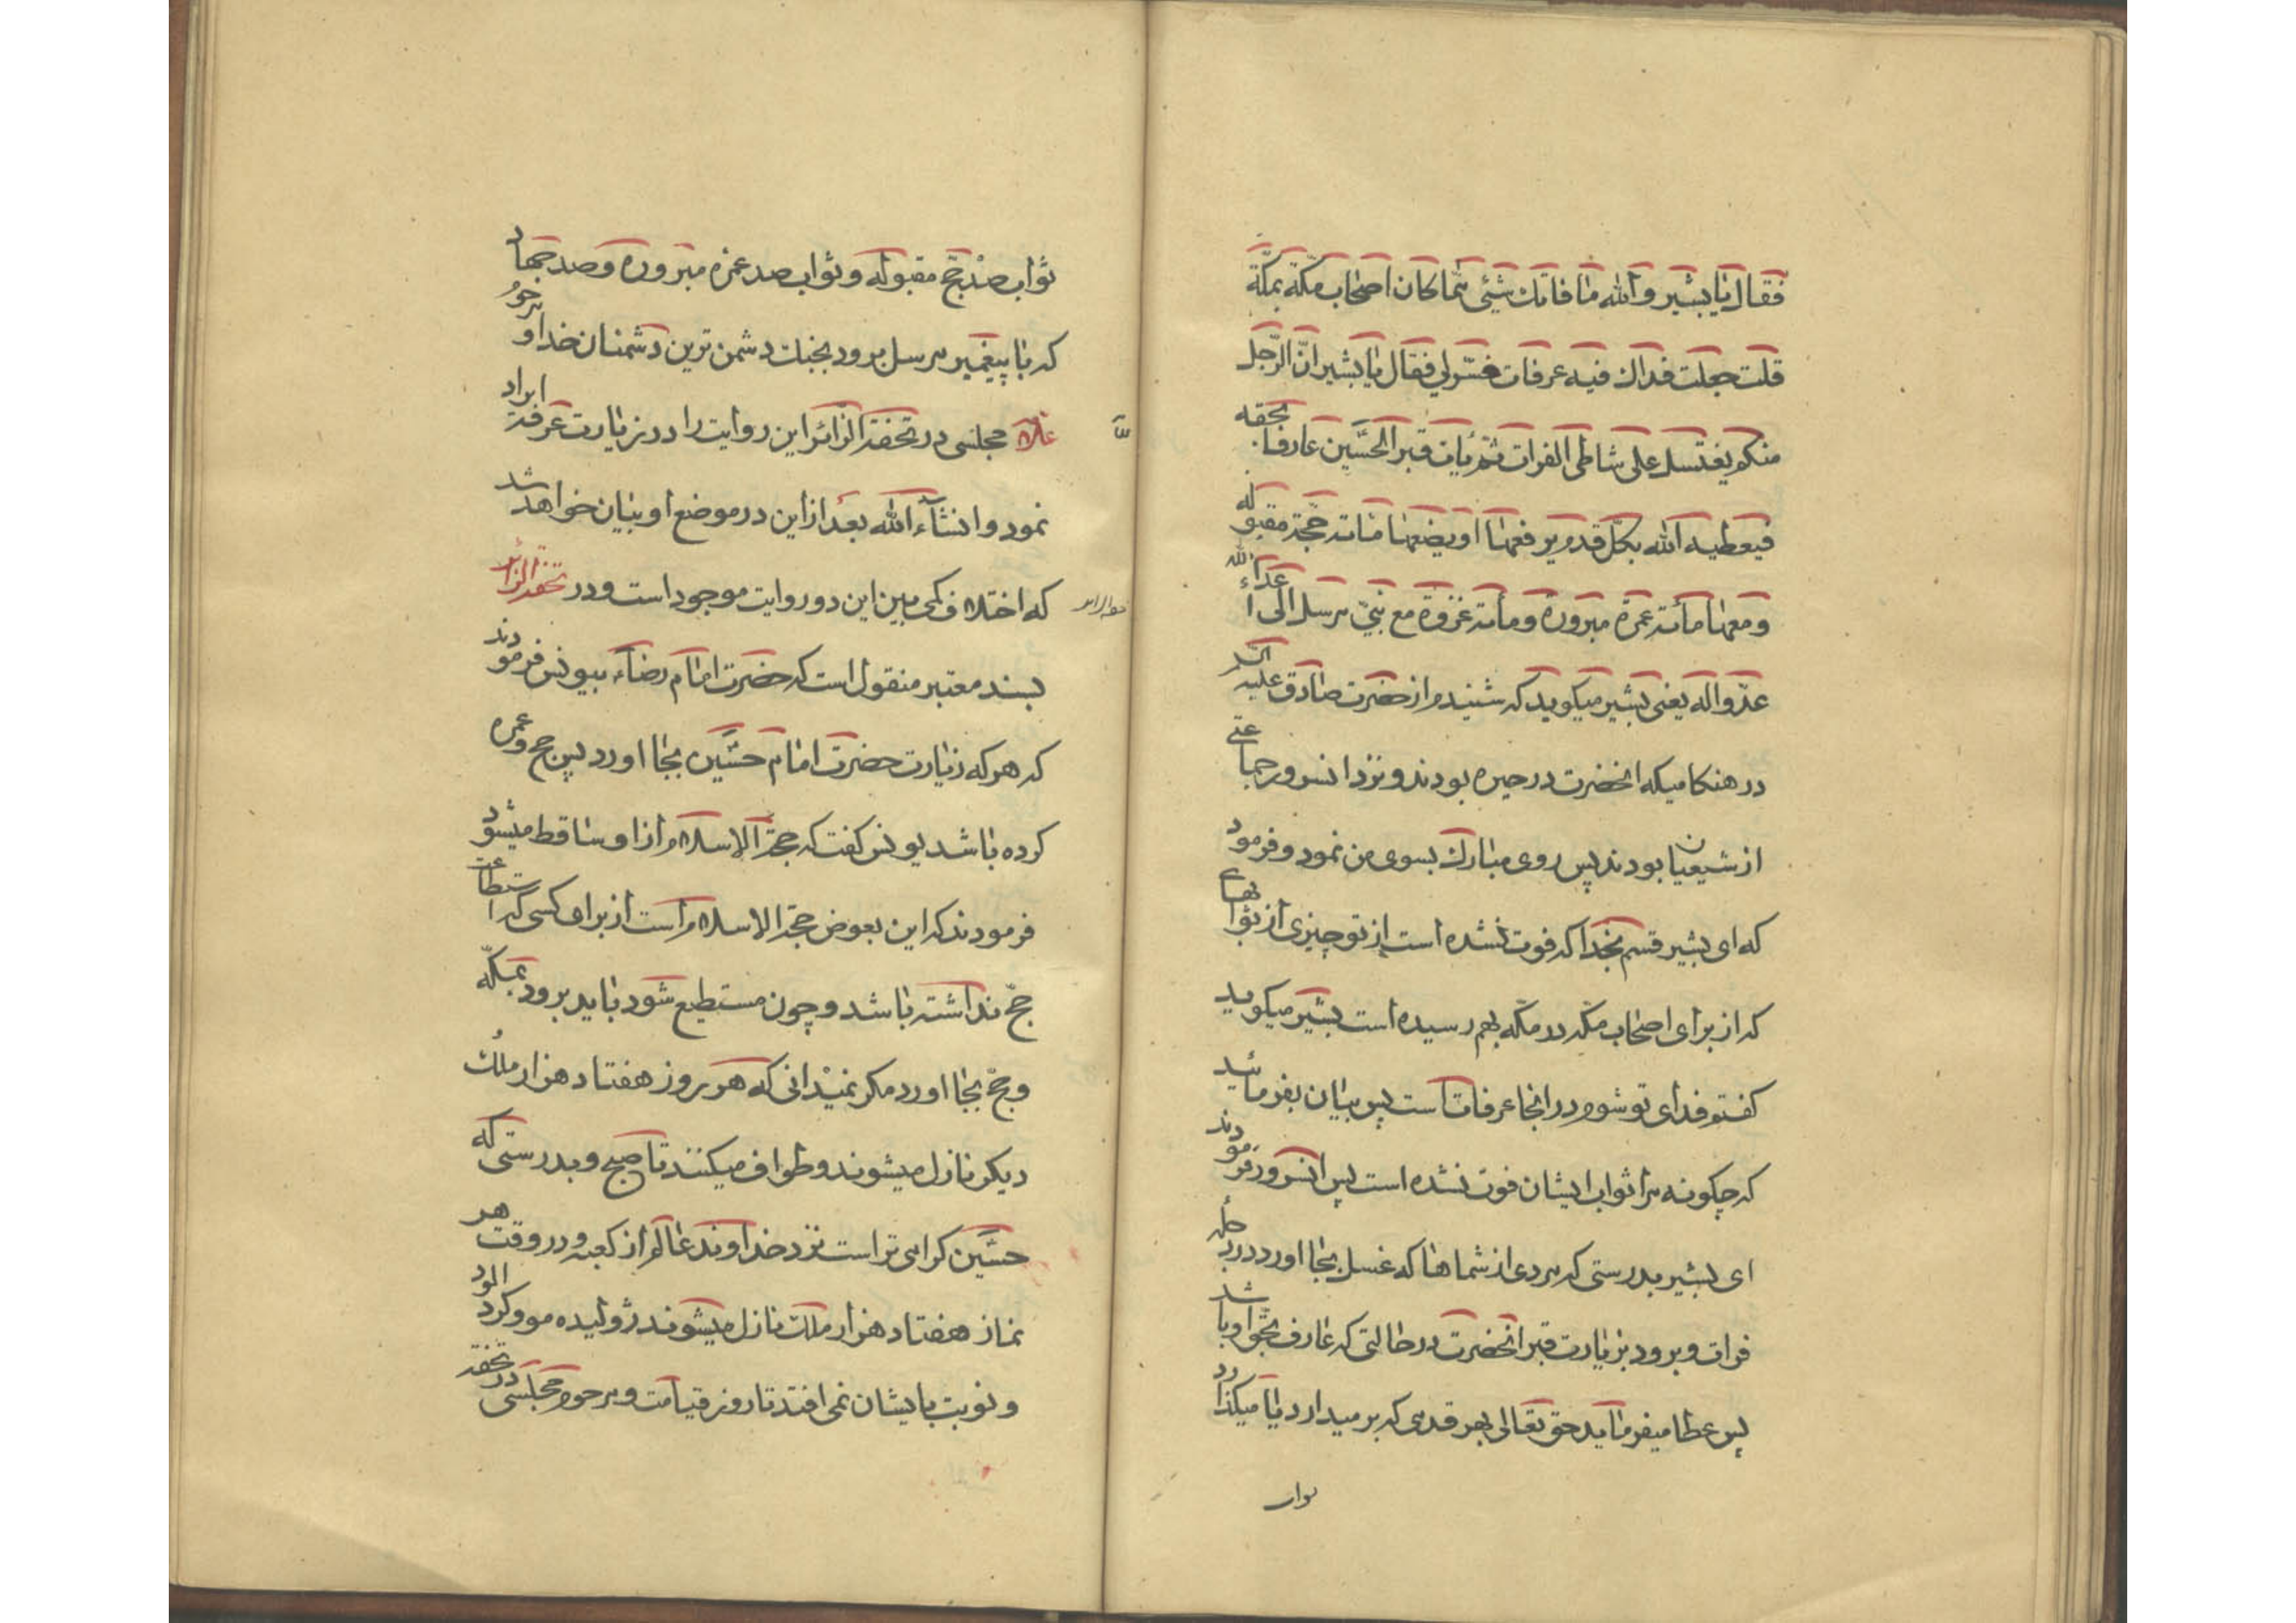 فقال یا بشیر والله ما فاتك شیئی مما کان اصحاب مکة بمکة
قلت جعلت فداك فیه عرفات فسر لی فقال یا بشیر ان الرجل
منکم یغتسل علی شاطی الفرات ثم یات قبر الحسین عارفا بحقه
فیعطیه الله بکل قدم یرفعها او یضعها مائة حجة مقبوله
ومعها مأته عمرة مبرورة ومأته غزوة مع نبی مرسل الی اعداء الله
عدو اله یعنی بشیر میکوید که شنیدم از حضرت صادق علیه
در هنکامیکه انحضرت در حیره بودند ونزد انسرور جماعتی
از شیعیان بودند پس روی مبارك بسوی من نمود وفرمود
که ای بشیر قسم بخدا که فوت نشده است از تو چیزی از ثوابهای
که از برای اصحاب مکه در مکه بهم رسیده است بشیر میکوید
کفتم فدای تو شوم در انجا عرفات است پس بیان بفرمائید
که چکونه مرا ثواب ایشان فوت نشده است پس انسرور فرمودند
ای بشیر بدرستی که مردی از شماها که غسل بجا اورد در دجله
فرات وبرود بزیارت قبر انحضرت در حالتی که عارف بحق او باشد
پس عطا میفرماید حق تعالی بهر قدمی که بر میدارد یا میکذارد
ثواب
ثواب صد حج مقبوله وثواب صد عمره مبروره وصد جهاد
که با پیغمبر مرسل برود بجنك دشمن ترین دشمنان خدا و مرحوم
علامه مجلسی در تحفة الزائر این روایت را در زیارت عرفه ایراد
نمود وانشاء الله بعد از این در موضع او بیان خواهد شد
که اختلاف کمی مبین این دو روایت موجود است ودر تحفة الزائر
بسند معتبر منقول است که حضرت امام رضاء بیونس فرمودند
که هر که زیارت حضرت امام حسین بجا اورد پس حج وعمره
کرده باشد یونس کفت که حجة الاسلام از او ساقط میشود
فرمودند که این بعوض حجة الاسلام است از برای کسی که استطاعت
حج نداشته باشد وچون مستطیع شود باید برود بمکه
وحج بجا اورد مکر نمیدانی که هر روز هفتاد هزار ملك
دیکر نازل میشوند وطواف میکنند تا صبح وبدرستی که
حسین کرامی تر است نزد خداوند عالم از کعبه ودر وقت هر
نماز هفتاد هزار ملك نازل میشوند ژولیده مو وکرد الود
ونوبت بایشان نمی افتد تا روز قیامت ومرحوم مجلسی در تحفه